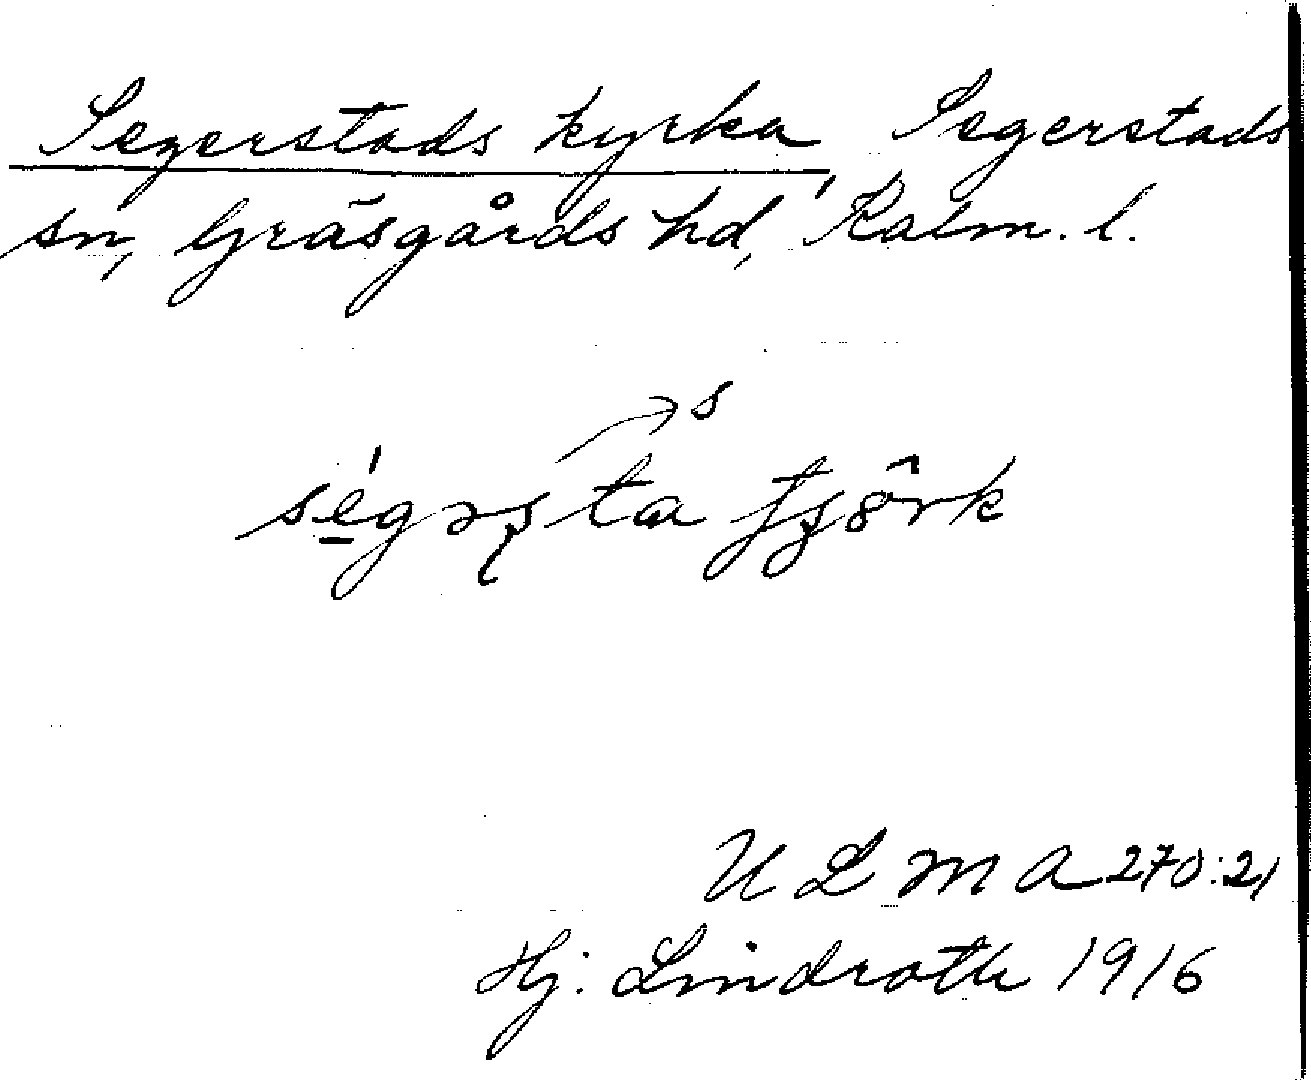 Segerstads kyrka, Segerstads
sn, Gräsgårds hd, Kalm. l.
s
ULMA 270:21
Hj. Lindroth 1916